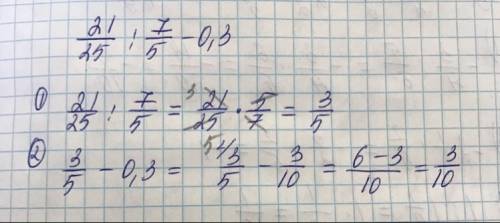 21/25 : 7/5 - 0,3
① 21/25 : 7/5 = ³21/25₅ · 5/7 = 3/5
② 3/5 - 0,3 = ²⁄3/5 - 3/10 = 6-3/10 = 3/10